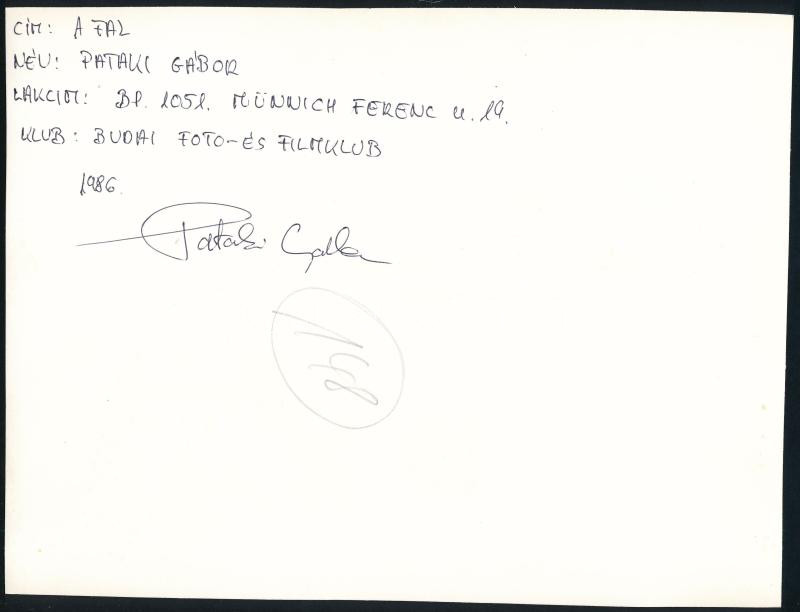 CÍM: A FAL
NÉV: PATAKI GÁBOR
LAKCIM: BP. 1051. MÜNNICH FERENC u. 19.
KLUB: BUDAI FOTO-ÉS FILMKLUB
1986.
Pataki Gábor
148